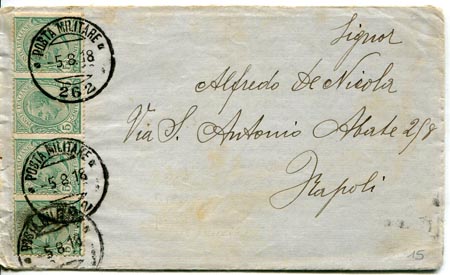 POSTA MILITARE
-5.8.18
262
POSTA MILITARE
-5.8.18
POSTA MILITARE
5.8.18
Signor
Alfredo De Nicola
Via S. Antonio Abate 258
Napoli
15